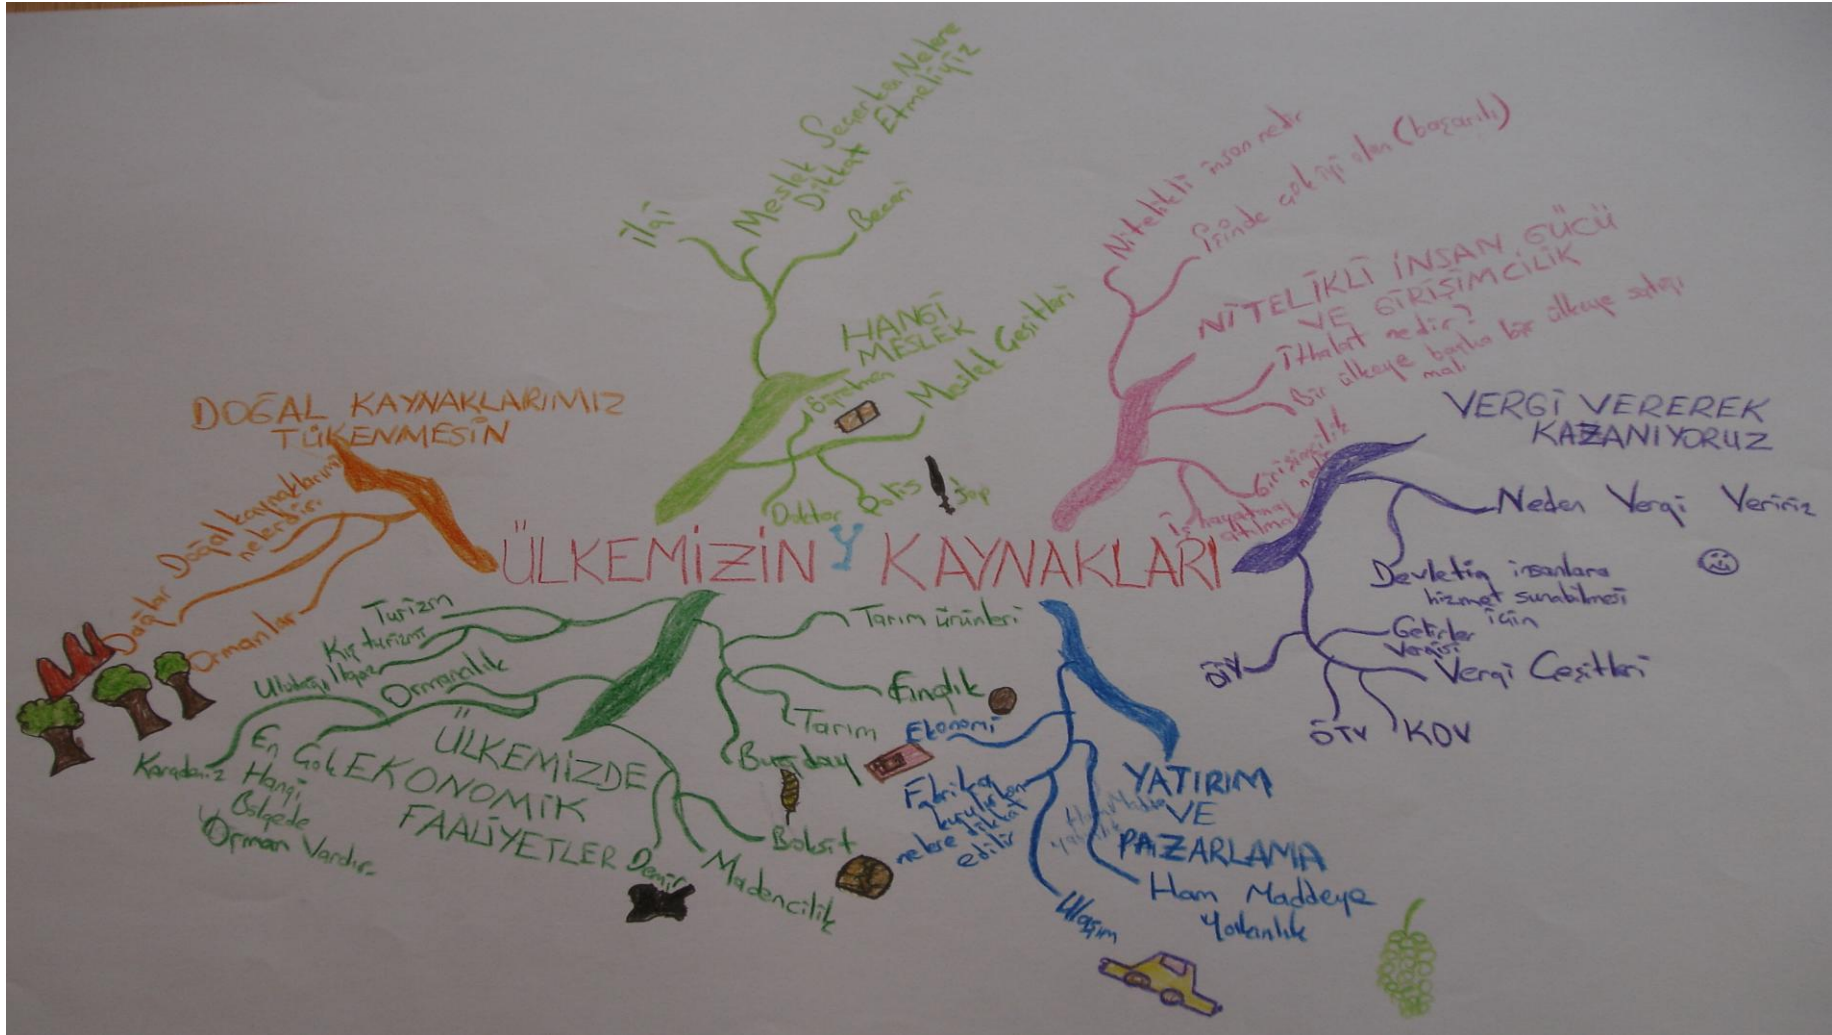 ÜLKEMİZİN Y KAYNAKLARI
DOĞAL KAYNAKLARIMIZ
TÜKENMESİN
Doğal kaynaklarımız
nelerdir
Dağlar
Ormanlar
HANGİ
MESLEK
İlgi
Meslek Seçerken Nelere
Dikkat Etmeliyiz
Beceri
Meslek Çeşitleri
Öğretmen
Doktor
Polis
Jop
NİTELİKLİ İNSAN GÜCÜ
VE GİRİŞİMCİLİK
Nitelikli insan nedir
İşinde çok iyi olan (başarılı)
İthalat nedir?
Bir ülkeye başka bir ülkeye sattığı
malı
Girişimcilik
nedir
İş hayatına
atılmak
VERGİ VEREREK
KAZANIYORUZ
Neden Vergi Veririz
Devletin insanlara
hizmet sunabilmesi
için
Gelirler
Vergisi
Vergi Çeşitleri
ÖTV
KDV
Turizm
Kış turizmi
Uludağ Ilgaz
Ormancılık
Karadeniz
En Çok
Hangi
Bölgede
Orman Vardır
ÜLKEMİZDE
EKONOMİK
FAALİYETLER
Tarım ürünleri
Fındık
Tarım
Buğday
Boksit
Madencilik
Demir
YATIRIM
VE
PAZARLAMA
Ekonomi
Fabrika
kurulurken
nelere dikkat
edilir
Ulaşım
Ham Maddeye
Yakınlık